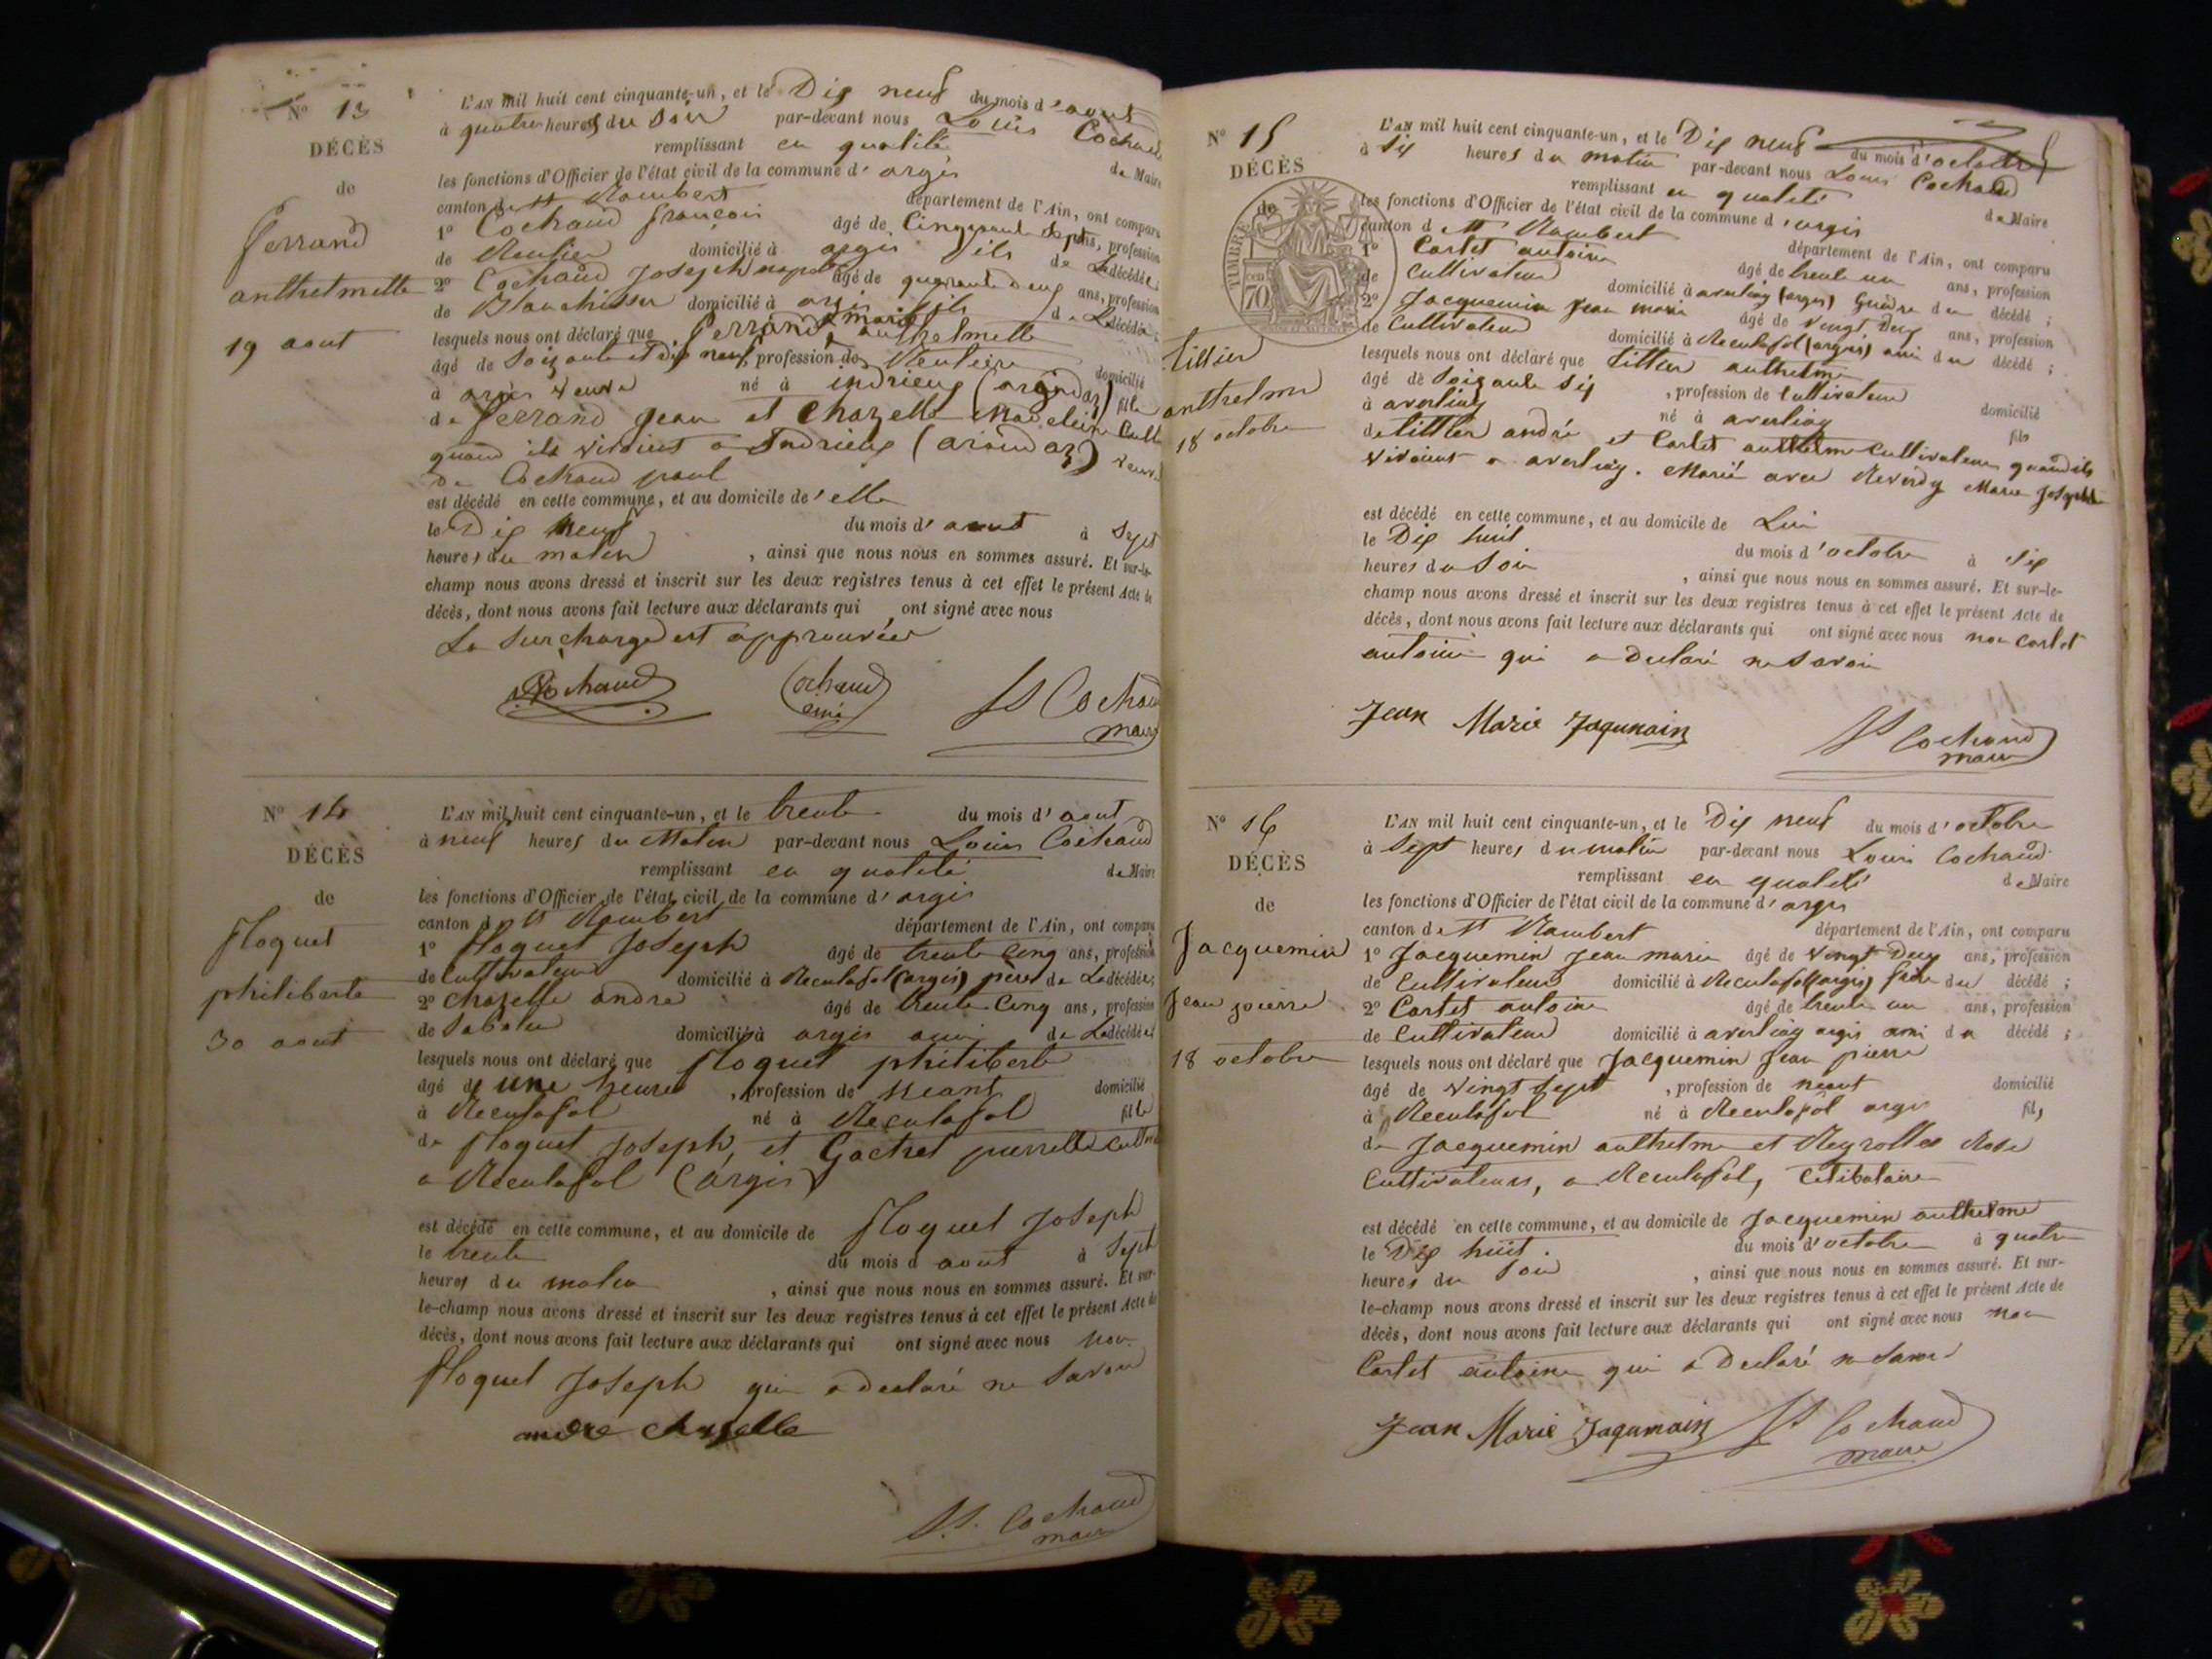 N° 13
DÉCÈS
de
Ferrand
anthelmette
19 aout
L'AN mil huit cent cinquante-un, et le Dix neuf du mois d'aout
à quatre heures du Soir par-devant nous Louis Cochaud
remplissant en qualité de Maire
les fonctions d'Officier de l'état civil de la commune d'argis
canton de St Rambert département de l'Ain, ont comparu
1° Cochaud françois âgé de Cinquante Sept ans, profession
de Rentier domicilié à argis fils de La décédée
2° Cochaud Joseph âgé de quarante deux ans, profession
de Blanchisseur domicilié à argis fils de La décédée
lesquels nous ont déclaré que Ferrand marie anthelmette
âgé de Soixante et Dix neuf, profession de Rentière domicilié
à argis veuve né à indrieux (arandaz) fille
de Ferrand Jean et Chazelle Madeleine Cult
quand ils vivaient a Indrieux (arandaz) veuve
De Cochaud paul
est décédé en cette commune, et au domicile d'elle
le Dix neuf du mois d'aout à Sept
heures du matin, ainsi que nous nous en sommes assuré. Et sur-le-
champ nous avons dressé et inscrit sur les deux registres tenus à cet effet le présent Acte de
décès, dont nous avons fait lecture aux déclarants qui ont signé avec nous
La Surcharge est approuvée
Cochaud Cochaud ainé Ls Cochaud
maire
N° 14
DÉCÈS
de
floquet
philiberte
30 aout
L'AN mil huit cent cinquante-un, et le trente du mois d'aout
à neuf heures du Matin par-devant nous Louis Cochaud
remplissant en qualité de Maire
les fonctions d'Officier de l'état civil de la commune d'argis
canton de St Rambert département de l'Ain, ont comparu
1° floquet Joseph âgé de trente Cinq ans, profession
de Cultivateur domicilié à Reculafol (argis) père de La décédée;
2° Chazelle andré âgé de trente Cinq ans, profession
de domicilié à argis ami de La décédée
lesquels nous ont déclaré que floquet philiberte
âgé de une heure, profession de Neant domicilié
à Reculafol né à Reculafol fille
de floquet Joseph, et Gachet pierrette Cult
a Reculafol (argis)
est décédé en cette commune, et au domicile de floquet Joseph
le trente du mois d aout à Sept
heures du matin, ainsi que nous nous en sommes assuré. Et sur-
le-champ nous avons dressé et inscrit sur les deux registres tenus à cet effet le présent Acte de
décès, dont nous avons fait lecture aux déclarants qui ont signé avec nous non
floquet Joseph qui a declaré ne Savoir
andre chazelle
Ls Cochaud
maire
N° 15
DÉCÈS
de
TIMBRE
70
tittier
anthelme
18 octobre
L'AN mil huit cent cinquante-un, et le Dix neuf du mois d'octobre
à Six heures du matin par-devant nous Louis Cochaud
remplissant en qualité de Maire
les fonctions d'Officier de l'état civil de la commune d'argis
canton d St Rambert département de l'Ain, ont comparu
1° Cartet antoine âgé de trente un ans, profession
de Cultivateur domicilié à averliaz (argis) Gendre du décédé;
2° Jacquemin Jean marie âgé de vingt Deux ans, profession
de Cultivateur domicilié à Reculafol (argis) ami du décédé;
lesquels nous ont déclaré que tittier anthelme
âgé de Soixante Six, profession de Cultivateur domicilié
à averliaz né à averliaz fils
de tittier andré et Cartet anthelme Cultivateurs quand ils
vivaient a averliaz. Marié avec Reverdy Marie Josephte
est décédé en cette commune, et au domicile de Lui
le Dix huit du mois d'octobre à Six
heures du Soir, ainsi que nous nous en sommes assuré. Et sur-le-
champ nous avons dressé et inscrit sur les deux registres tenus à cet effet le présent Acte de
décès, dont nous avons fait lecture aux déclarants qui ont signé avec nous non Cartet
antoine qui a declaré ne Savoir
Jean Marie Jaqumain Ls Cochaud
maire
N° 16
DÉCÈS
de
Jacquemin
Jean pierre
18 octobre
L'AN mil huit cent cinquante-un, et le Dix neuf du mois d'octobre
à Sept heures du matin par-devant nous Louis Cochaud
remplissant en qualité de Maire
les fonctions d'Officier de l'état civil de la commune d'argis
canton de St Rambert département de l'Ain, ont comparu
1° Jacquemin Jean marie âgé de Vingt Deux ans, profession
de Cultivateur domicilié à Reculafol (argis) frère du décédé;
2° Cartet antoine âgé de trente un ans, profession
de Cultivateur domicilié à averliaz argis ami du décédé;
lesquels nous ont déclaré que Jacquemin Jean pierre
âgé de vingt Sept, profession de neant domicilié
à Reculafol né à Reculafol argis fils
de Jacquemin anthelme et Reyrolles Rose
Cultivateurs, a Reculafol, Celibataire
est décédé en cette commune, et au domicile de Jacquemin anthelme
le Dix huit. du mois d'octobre à quatre
heures du Soir, ainsi que nous nous en sommes assuré. Et sur-
le-champ nous avons dressé et inscrit sur les deux registres tenus à cet effet le présent Acte de
décès, dont nous avons fait lecture aux déclarants qui ont signé avec nous non
Cartet antoine qui a Declaré ne Savoir
Jean Marie Jaqumain Ls Cochaud
maire